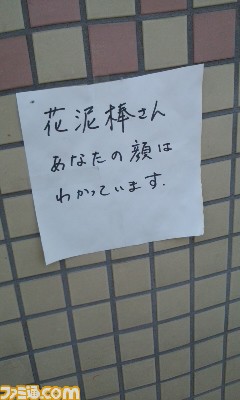 花泥棒さん
あなたの顔は
わかっています.
ファミ通.com